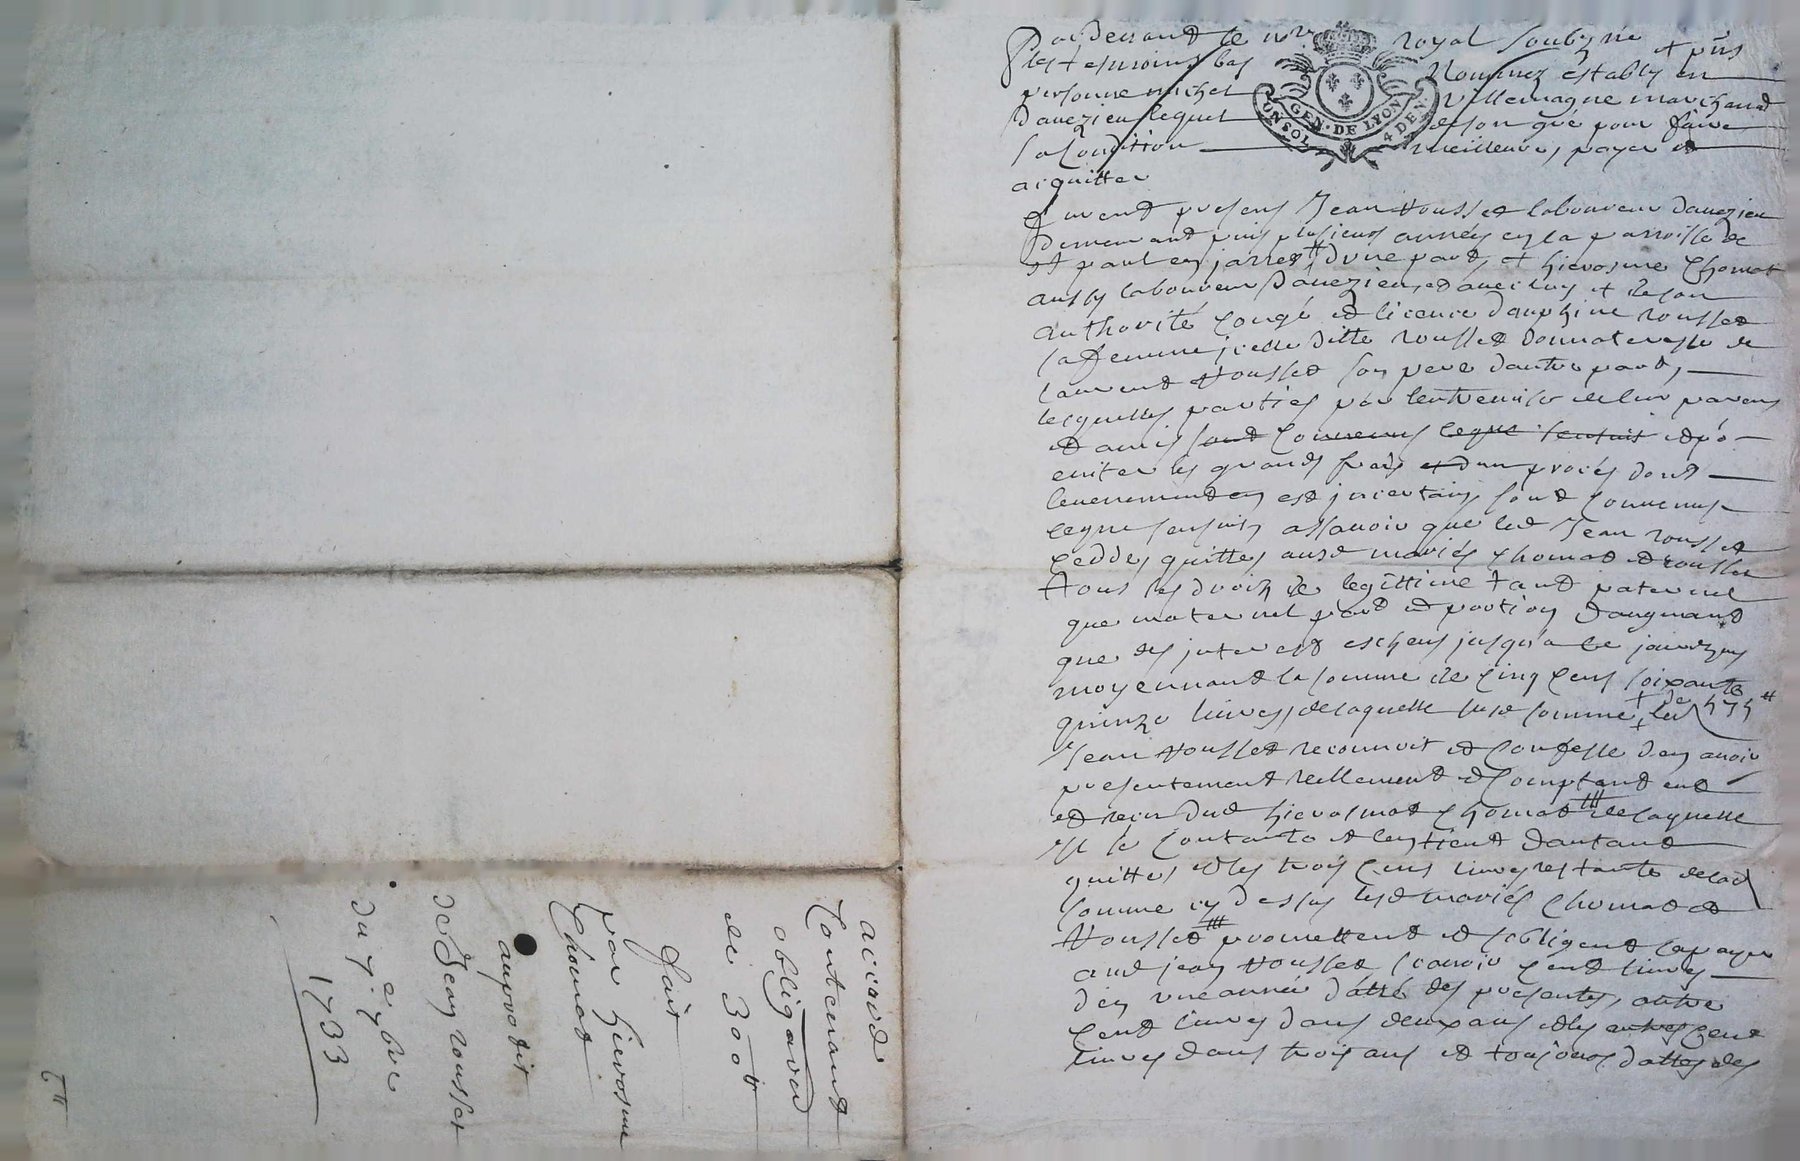 Par devant le nore royal soubzné et pns
les tesmoins bas nommez establis en
personne michel villemagne marchand
davezieu lequel de son gre pour faire
sa condition meilleure, payer et
acquitter
GEN. DE LYON
4 DEN
Furent presens Jean Rousset laboureur davezieu
demeurant puis plusieurs années en la parroisse de
st paul en jarrest d'une part, et hierosme Chomat
aussy laboureur davezieu, et avec luy et de son
authorité congé et licence dauphine rousset
sa femme icelle ditte rousset donnateresse de
laurent Rousset son pere dautre part,
lesquelles parties par lentremise de leur parens
et amis sont convenus ceque sensuit et po
eviter les grands frais et dun procés dont
levenement en est incertain, sont convenus
ceque sensuit, assavoir que led Jean rousset
cedde, quitte, ausd mariés chomat et rousset
tous les droits de legittime tant paternel
que maternel part et portion daugment
que des interest escheus jusqu'a ce jourdhuy
moyennant la somme de cinq cens soixante
quinze livres, de laquelle susd somme de 575 ₶ led
Jean Rousset reconnoit et confesse den avoir
presentement reellement et comptant eut
et receu dud hierosme chomat de laquelle
il se contante et len tient dautant
quitte, et les trois cens livres restante de lad
somme cy dessus lesd mariés chomat et
Rousset promettent et sobligent la payer
aud jean Rousset scavoir cent livres
d'en une année datté des presentes, autre
cent livres dans deux ans et les autres cent
livres dans trois ans et toujours datté des
accord
Contenant
obligaon
de 300 ₶
fait
par hierosme
Chomat
au proffit
de Jean rousset
du 7e 7bre
1733